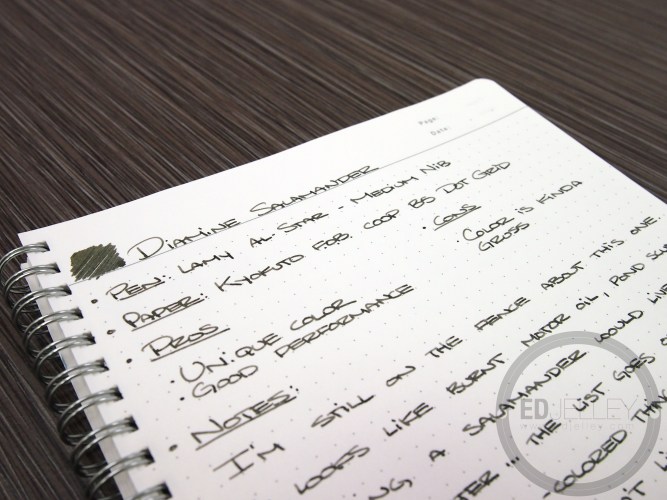 Page:
Date:
DIAMINE SALAMANDER
• PEN: LAMY AL-STAR - MEDIUM NIB
• PAPER: KYOKUTO F.O.B. COOP B5 DOT GRID
• PROS
• UNIQUE COLOR
• GOOD PERFORMANCE
• CONS
• COLOR IS KINDA
GROSS
• NOTES:
I'M STILL ON THE FENCE ABOUT THIS ONE.
LOOKS LIKE BURNT MOTOR OIL, POND
A SALAMANDER WOULD LIVE
... THE LIST GOES
COLORED
ED JELLEY